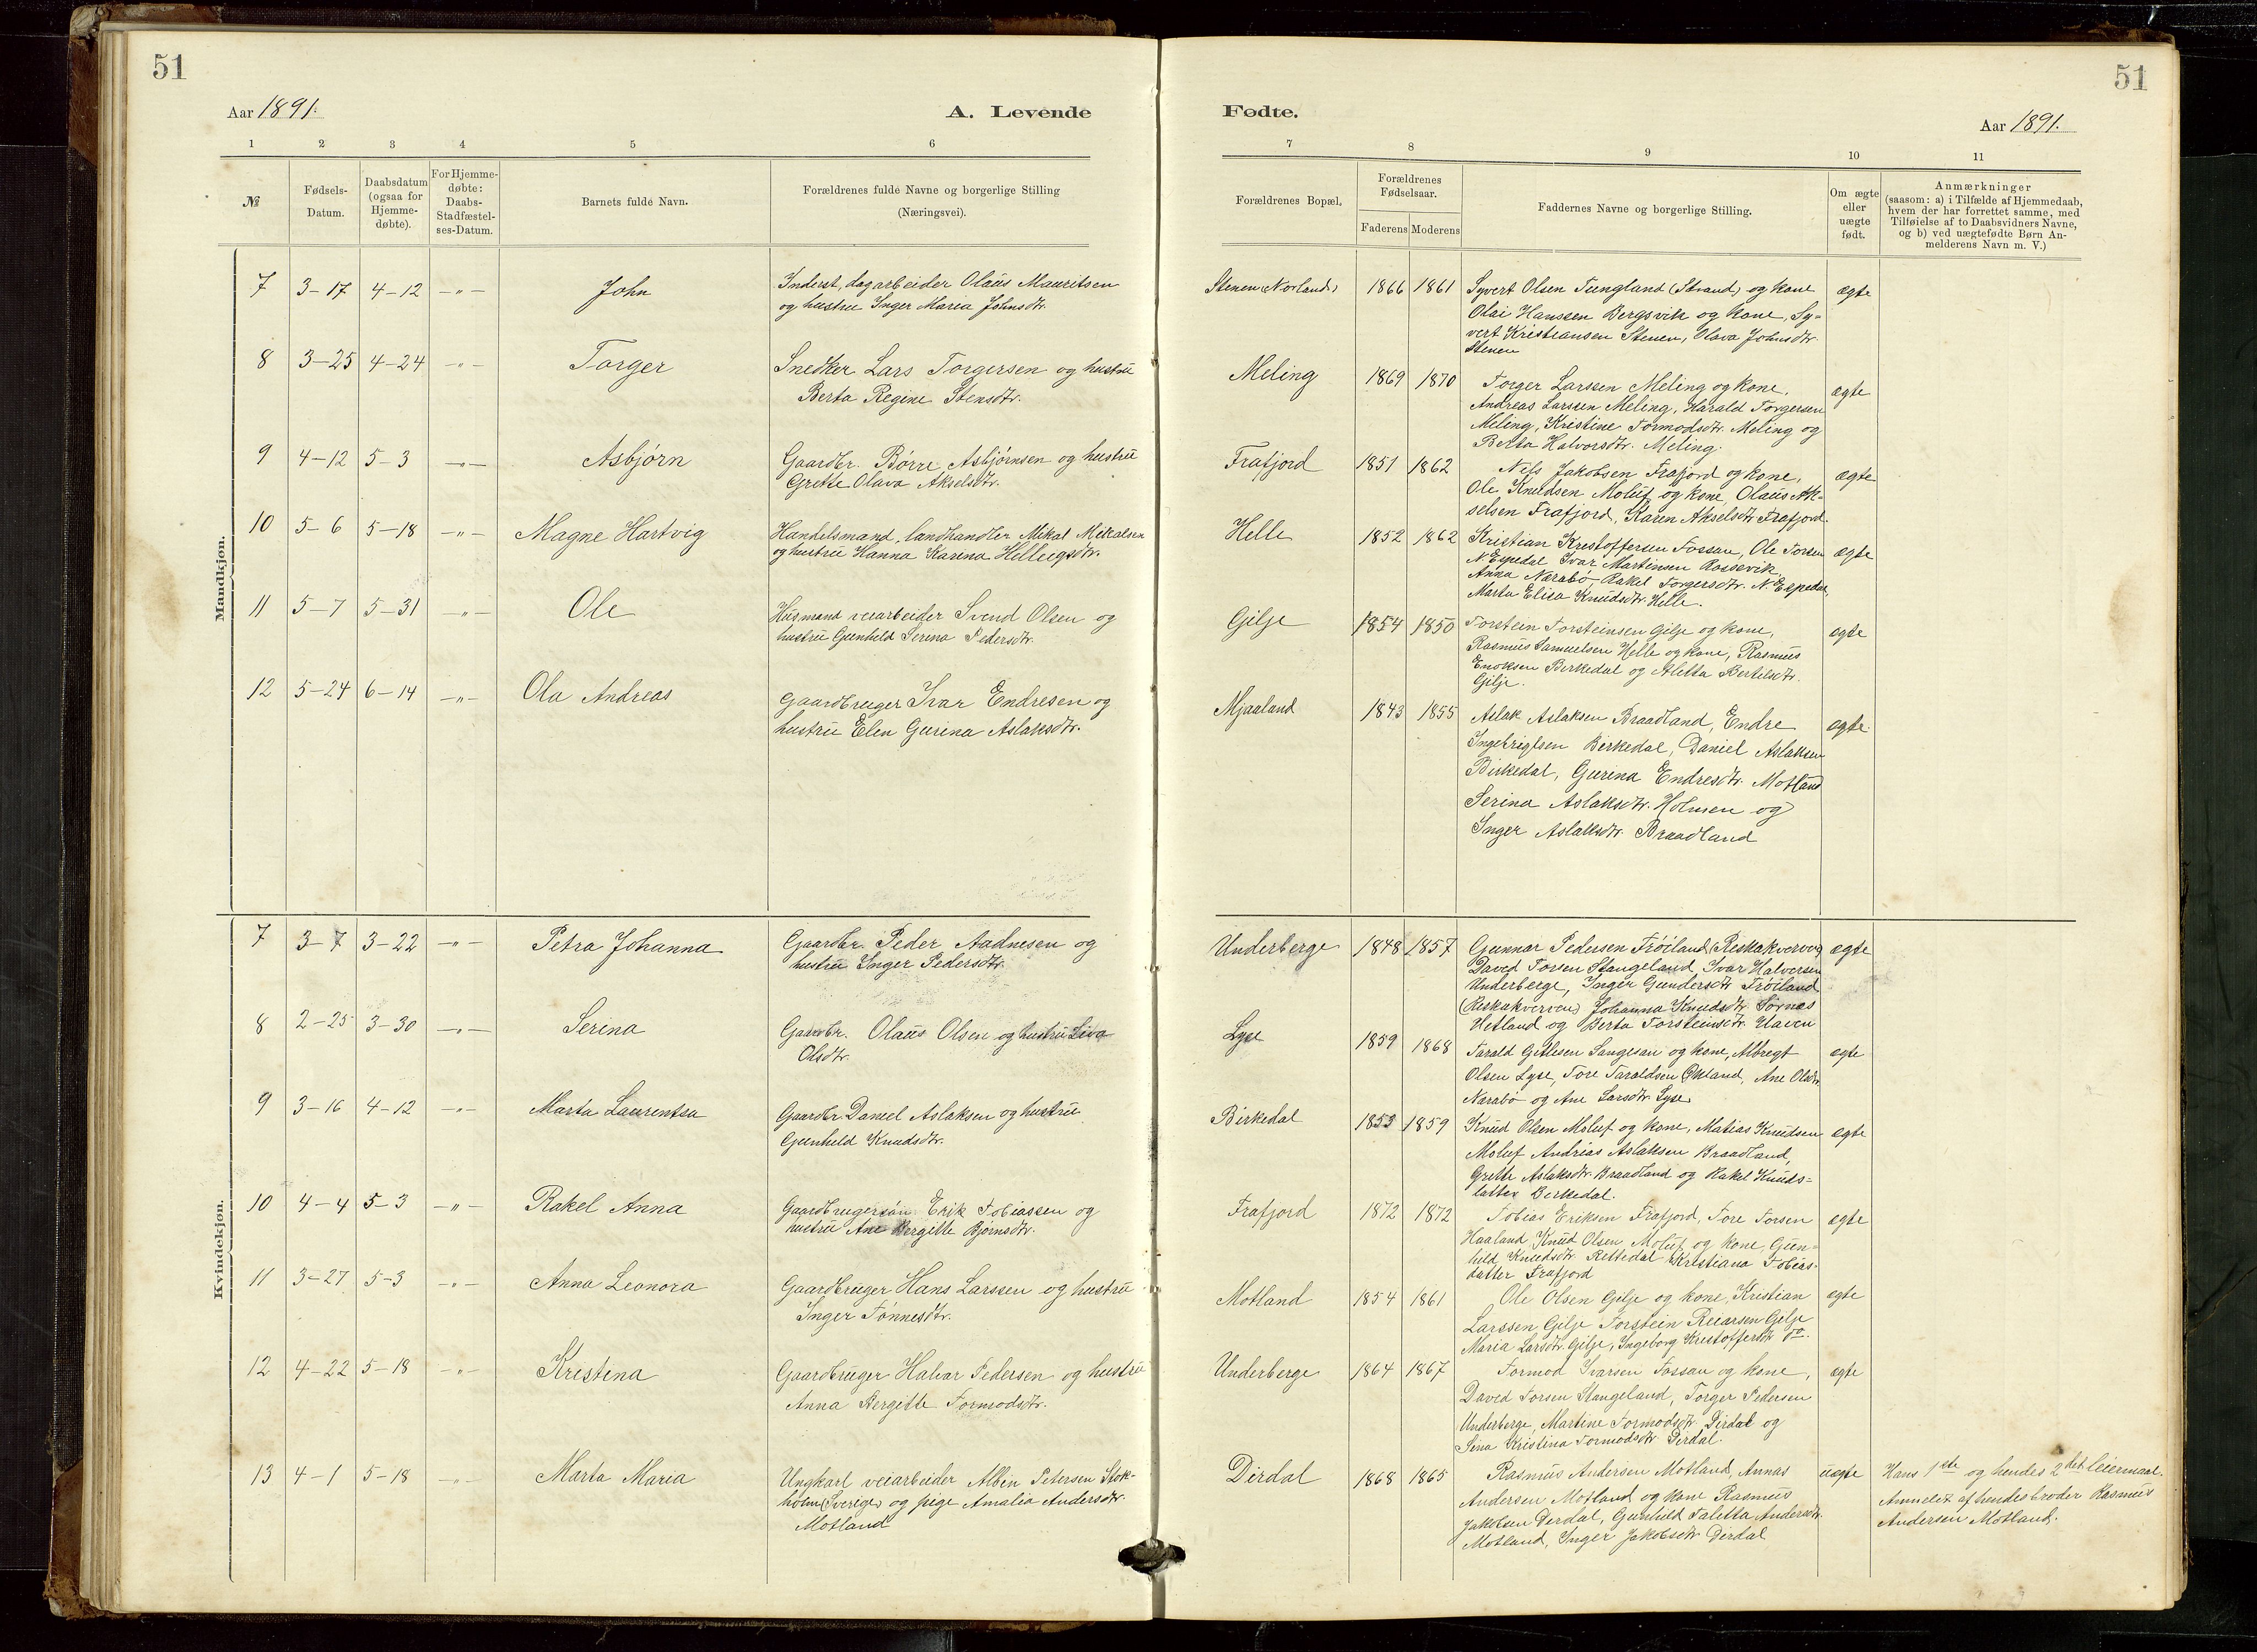 51
51
Aar 1891.
A. Levende
Fødte.
Aar 1891.
1 2 3 4 5 6
7 8 9 10 11
№
Fødsels-
Datum.
Daabsdatum
(ogsaa for
Hjemme-
døbte).
For Hjemme-
døbte:
Daabs-
Stadfæstel-
ses-Datum.
Barnets fulde Navn.
Forældrenes fulde Navne og borgerlige Stilling
(Næringsvei).
Forældrenes Bopæl.
Forældrenes
Fødselsaar.
Faderens Moderens
Faddernes Navne og borgerlige Stilling.
Om ægte
eller
uægte
født.
Anmærkninger
(saasom: a) i Tilfælde af Hjemmedaab,
hvem der har forrettet samme, med
Tilføielse af to Daabsvidners Navne,
og b) ved uægtefødte Børn An-
melderens Navn m. V.)
Mandkjøn.
7 3-17 4-12 -"- John
Inderst, dagarbeider Olaus Mauritsen
og hustru Inger Maria Johnsdtr.
Stenen (Norland) 1866 1861
Syvert Olsen Tungland (Strand) og kone
Olai Hanssen Bergsvik og kone, Sy-
vert Kristiansen Stenen, Olava Johnsdtr.
Stenen
ægte
8 3-25 4-24 -"- Torger
Snedker Lars Torgersen og hustru
Berta Regine Stensdtr.
Meling 1869 1870
Torger Larssen Meling og kone,
Andreas Larssen Meling, Harald Torgersen
Meling, Kristine Tormodsdtr. Meling og
Berta Halvorsdtr. Meling.
ægte
9 4-12 5-3 -"- Asbjørn
Gaardbr. Børre Asbjørnsen og hustru
Grette Olava Akselsdtr.
Frafjord 1851 1862
Nils Jakobsen Frafjord og kone,
Ole Knudsen Moluf og kone, Olaus Ak-
selsen Frafjord, Karen Akselsdtr Frafjord.
ægte
10 5-6 5-18 -"- Magne Hartvig
Handelsmand, landhandler Mikal Mikalsen
og hustru Hanna Karina Helliegsdtr.
Helle 1852 1862
Kristian Kristoffersen Fossan, Ole Torsen
N. Espedal Ivar Martinsen Rossevik,
Anna Narabø Rakel Torgersdtr. N. Espedal,
Marta Elisa Knudsdtr. Helle.
ægte
11 5-7 5-31 -"- Ole
Husmand veiarbeider Svend Olsen og
hustru Gunhild Serina Pedersdtr.
Gilje 1854 1850
Torstein Torsteinsen Gilje og kone,
Rasmus Samuelsen Helle og kone, Rasmus
Enoksen Birkedal og Aletta Bertelsdtr.
Gilje.
ægte
12 5-24 6-14 -"- Ola Andreas
Gaardbruger Ivar Endresen og
hustru Elen Gurina Aslaksdtr.
Mjaaland 1843 1855
Aslak Aslaksen Braadland, Endre
Ingebrigtsen Birkedal, Daniel Aslaksen
Birkedal, Gurina Endresdtr. Motland
Serina Aslaksdtr. Holmen og
Inger Aslaksdtr. Braadland
ægte
Kvindekjøn.
7 3-7 3-22 -"- Petra Johanna
Gaardbr. Peder Aadnesen og
hustru Inger Pedersdtr.
Underberge 1848 1857
Gunnar Pedersen Frøiland (Reskakverven)
David Torsen Stangeland, Ivar Halversen
Underberge, Inger Gundersdtr Frøiland
(Reskakverven) Johanna Knudsdtr. Sørnes
Hetland og Berta Torsteinsdtr. Haven
ægte
8 2-25 3-30 -"- Serina
Gaardbr. Olaus Olsen og hustru Siva
Olsdtr.
Lyse 1859 1868
Tarald Gitlesen Sangesan og kone, Albregt
Olsen Lyse, Tore Taraldsen Økland, Ane Olsdtr.
Narabø og Ane Larsdtr. Lyse.
ægte
9 3-16 4-12 -"- Marta Laurentsa
Gaardbr. Daniel Aslaksen og hustru
Gunhild Knudsdtr.
Birkedal 1853 1859
Knud Olsen Moluf og kone, Matias Knudsen
Moluf Andrias Aslaksen Braadland,
Grethe Aslaksdtr. Braadland og Rakel Knuds-
datter Birkedal.
ægte
10 4-4 5-3 -"- Rakel Anna
Gaardbrugersøn Erik Tobiassen og
hustru Ane Bergitte Bjørnsdtr.
Frafjord 1872 1872
Tobias Eriksen Frafjord, Tore Torsen
Haaland Knud Olsen Moluf og kone, Gun-
hild Knudsdtr. Rettedal Kristiana Tobias-
datter Frafjord
ægte
11 3-27 5-3 -"- Anna Leonora
Gaardbruger Hans Larssen og hustru
Inger Tønnesdtr.
Motland 1854 1861
Ole Olsen Gilje og kone, Kristian
Larssen Gilje Torstein Reiarsen Gilje
Maria Larsdtr. Gilje, Ingeborg Kristoffersdtr do.
ægte
12 4-22 5-18 -"- Kristina
Gaardbruger Halvar Pedersen og hustru
Anna Bergitte Tormodsdtr.
Underberge 1864 1867
Tormod Ivarsen Fossan og kone,
David Torsen Stangeland, Torger Pedersen
Underberge, Martine Tormodsdtr. Dirdal og
Sina Kristina Tormodsdtr Dirdal.
ægte
13 4-1 5-18 -"- Marta Maria
Ungkarl veiarbeider Albin Petersen Stok-
holm (Sverige) og pige Amalia Andersdtr.
Motland
Dirdal 1868 1865
Rasmus Andersen Motland, Annas
Andersen Motland og kone Rasmus
Jakobsen Dirdal, Gunhild Taletta Andersdtr.
Motland, Inger Jakobsdtr Dirdal
uægte
Hans 1ste og hendes 2det leiermaal.
Anmeldt af hendes broder Rasmus
Andersen Motland.